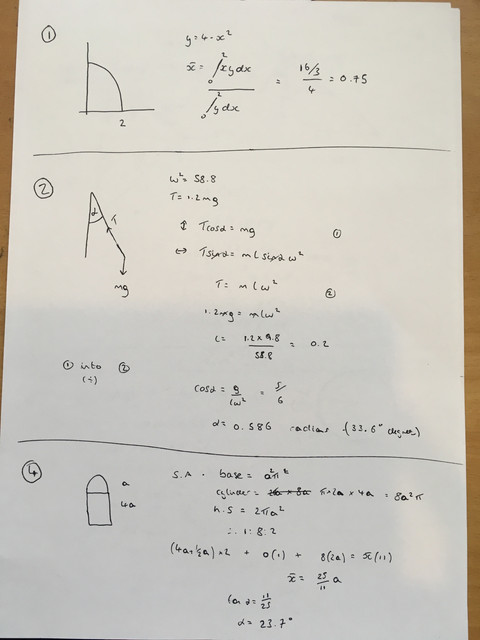 ①
y = 4 - x²
x̄ = ₀∫² xy dx / ₀∫² y dx = 16/3 / 4 = 0.75
2
②
ω² = 58.8
T = 1.2mg
α T
↕ Tcosα = mg ①
↔ Tsinα = m l sinα ω²
mg
T = m l ω² ②
1.2mg = mlω²
l = 1.2 x 9.8 / 58.8 = 0.2
① into ②
(÷)
cosα = g / lω² = 5/6
α = 0.586 radians (33.6° degrees)
④
a
4a
S.A. base = a²π
cylinder = π×2a × 4a = 8a²π
h.S = 2πa²
∴ 1:8:2
(4a+½a)×2 + 0(1) + 8(2a) = x̄(11)
x̄ = 25/11 a
tan α = 11/25
α = 23.7°